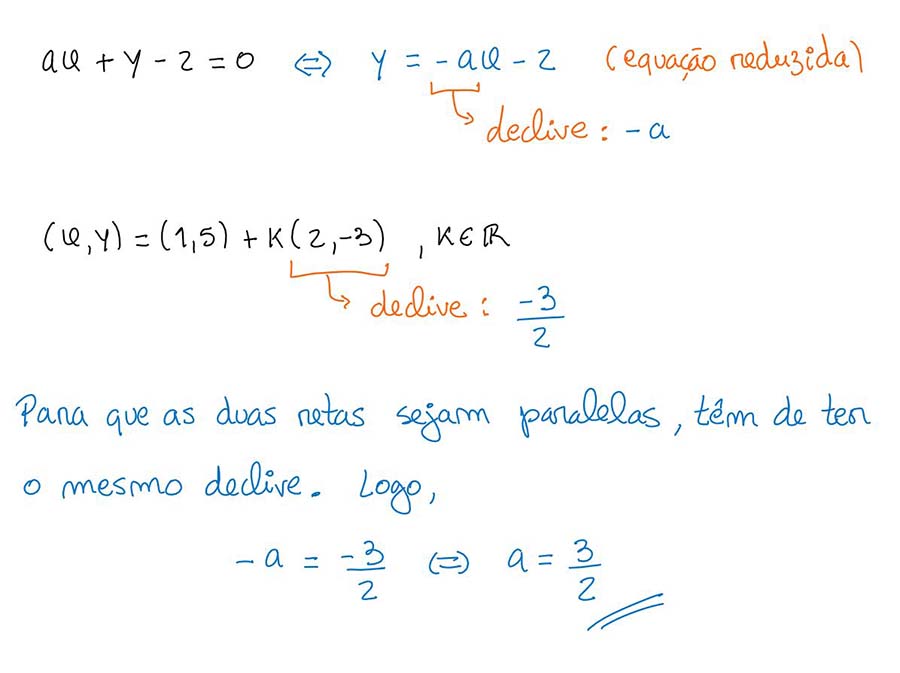 ax + y - 2 = 0 ⇔ y = -ax - 2 (equação reduzida)
declive: -a
(x,y) = (1,5) + K(2,-3) , K∈ℝ
declive: -3/2
Para que as duas retas sejam paralelas, têm de ter
o mesmo declive. Logo,
-a = -3/2 ⇔ a = 3/2